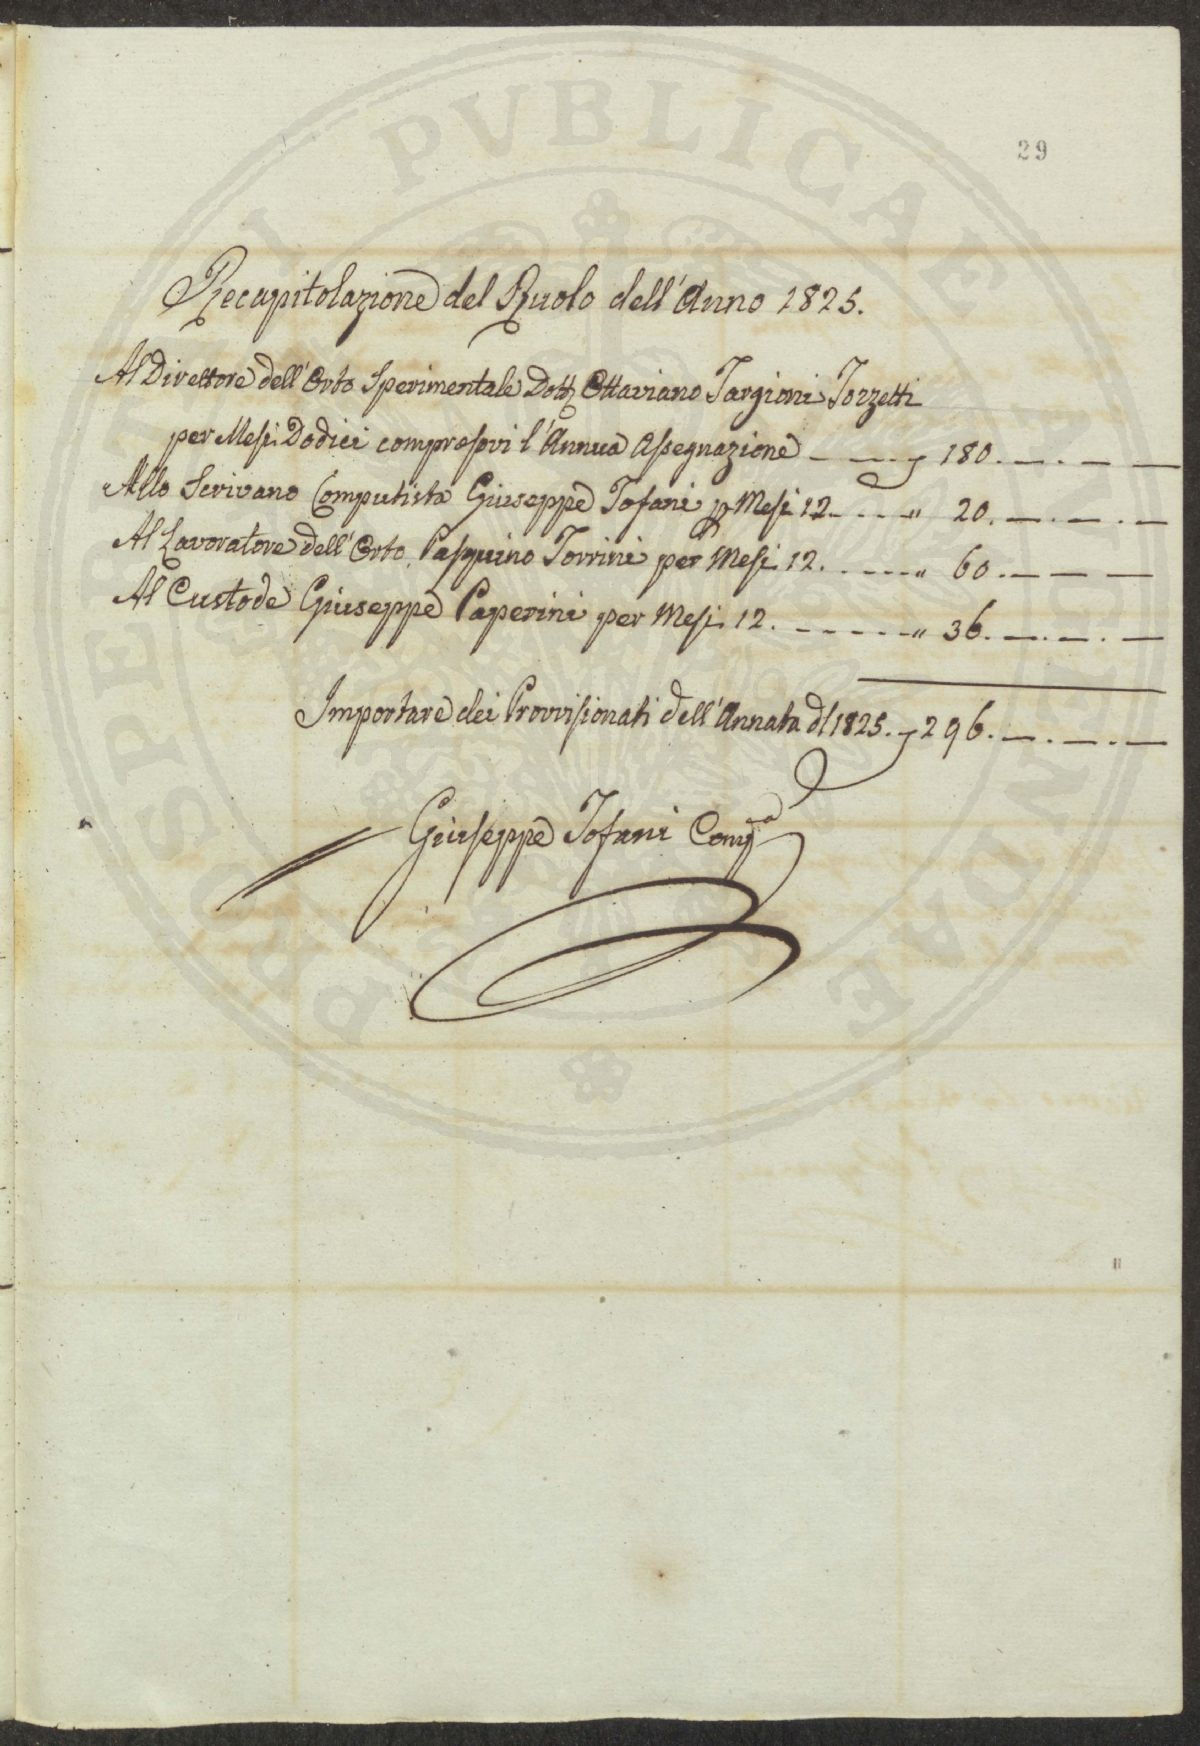 29
Recapitolazione del Ruolo dell'Anno 1825.
Al Direttore dell'Orto Sperimentale Dott. Ottaviano Targioni Tozzetti
per Mesi Dodici compresovi l'Annua Assegnazione 180. — — —
Allo Scrivano Computista Giuseppe Tofani p Mesi 12. " 20. — — —
Al Lavoratore dell'Orto Pasquino Torrini per Mesi 12. " 60. — — —
Al Custode Giuseppe Paperini per Mesi 12. " 36. — — —
Importare dei Provvisionati dell'Annata dl 1825. 296. — — —
Giuseppe Tofani Compa